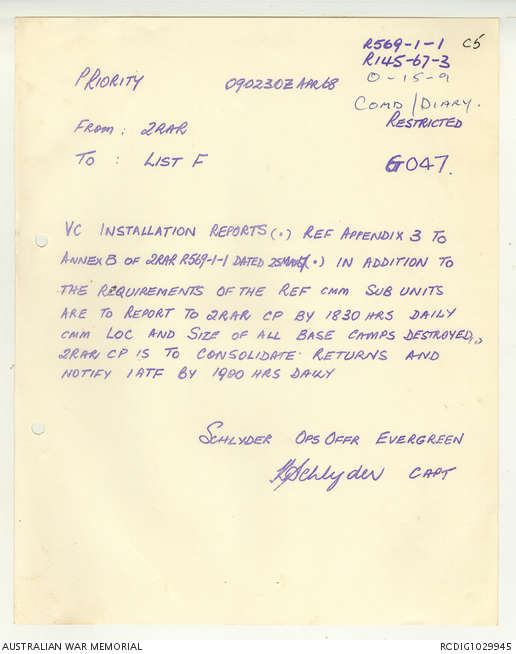 R569-1-1 C5
R145-67-3
0-15-9
COMD/DIARY.
PRIORITY 090230Z APR 68
RESTRICTED
FROM: 2RAR
TO : LIST F
G047.
VC INSTALLATION REPORTS (.) REF APPENDIX 3 TO
ANNEX B OF 2RAR R569-1-1 DATED (.) IN ADDITION TO
THE REQUIREMENTS OF THE REF CMM SUB UNITS
ARE TO REPORT TO 2RAR CP BY 1830 HRS DAILY
CMM LOC AND SIZE OF ALL BASE CAMPS DESTROYED.,
2RAR CP IS TO CONSOLIDATE RETURNS AND
NOTIFY 1ATF BY 1900 HRS DAILY
SCHLYDER OPS OFFR EVERGREEN
Schlyder CAPT
AUSTRALIAN WAR MEMORIAL RCDIG1029945